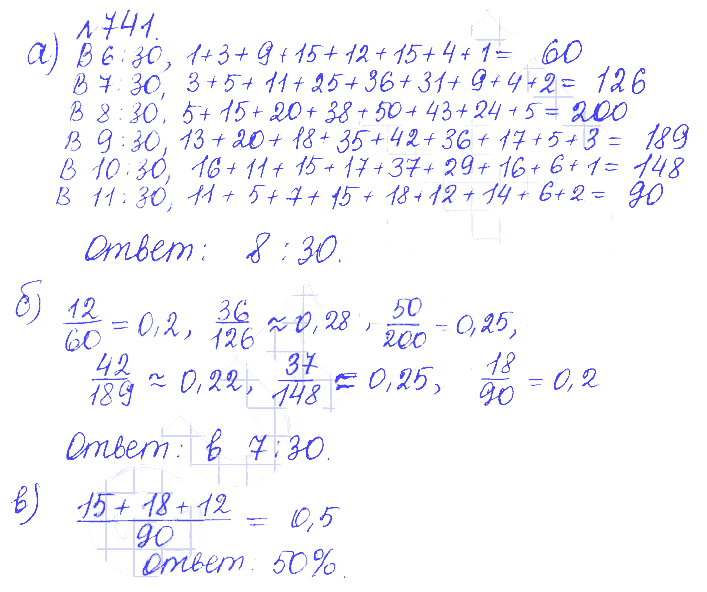 №741.
а) В 6:30, 1+3+9+15+12+15+4+1= 60
В 7:30, 3+5+11+25+36+31+9+4+2= 126
В 8:30, 5+15+20+38+50+43+24+5= 200
В 9:30, 13+20+18+35+42+36+17+5+3= 189
В 10:30, 16+11+15+17+37+29+16+6+1= 148
В 11:30, 11+5+7+15+18+12+14+6+2= 90
Ответ: 8:30.
б) 12/60 = 0,2, 36/126 ≈ 0,28, 50/200 = 0,25,
42/189 ≈ 0,22, 37/148 = 0,25, 18/90 = 0,2
Ответ: в 7:30.
в) (15+18+12)/90 = 0,5
Ответ: 50%.